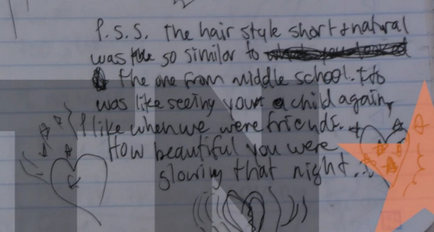 P.S.S. the hair style short & natural
was so similar to
the one from middle school. It
was like seeing your a child again,
like when we were friends.
How beautiful you were
glowing that night...